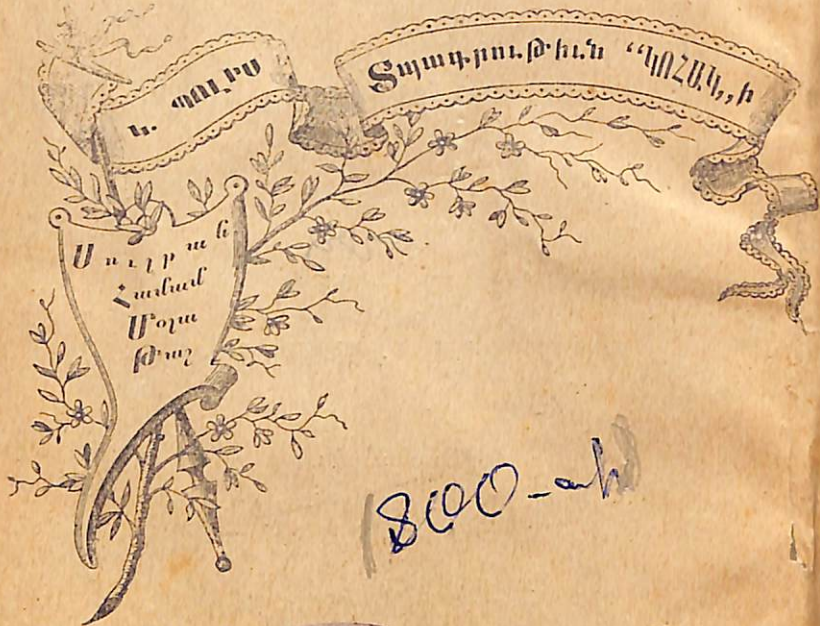 Կ. ՊՈԼԻՍ
Տպագրութիւն “ԿՈՀԱԿ„ի
Սուլթան
Համամ
Մօլլա
Թաշ
1800-ախ